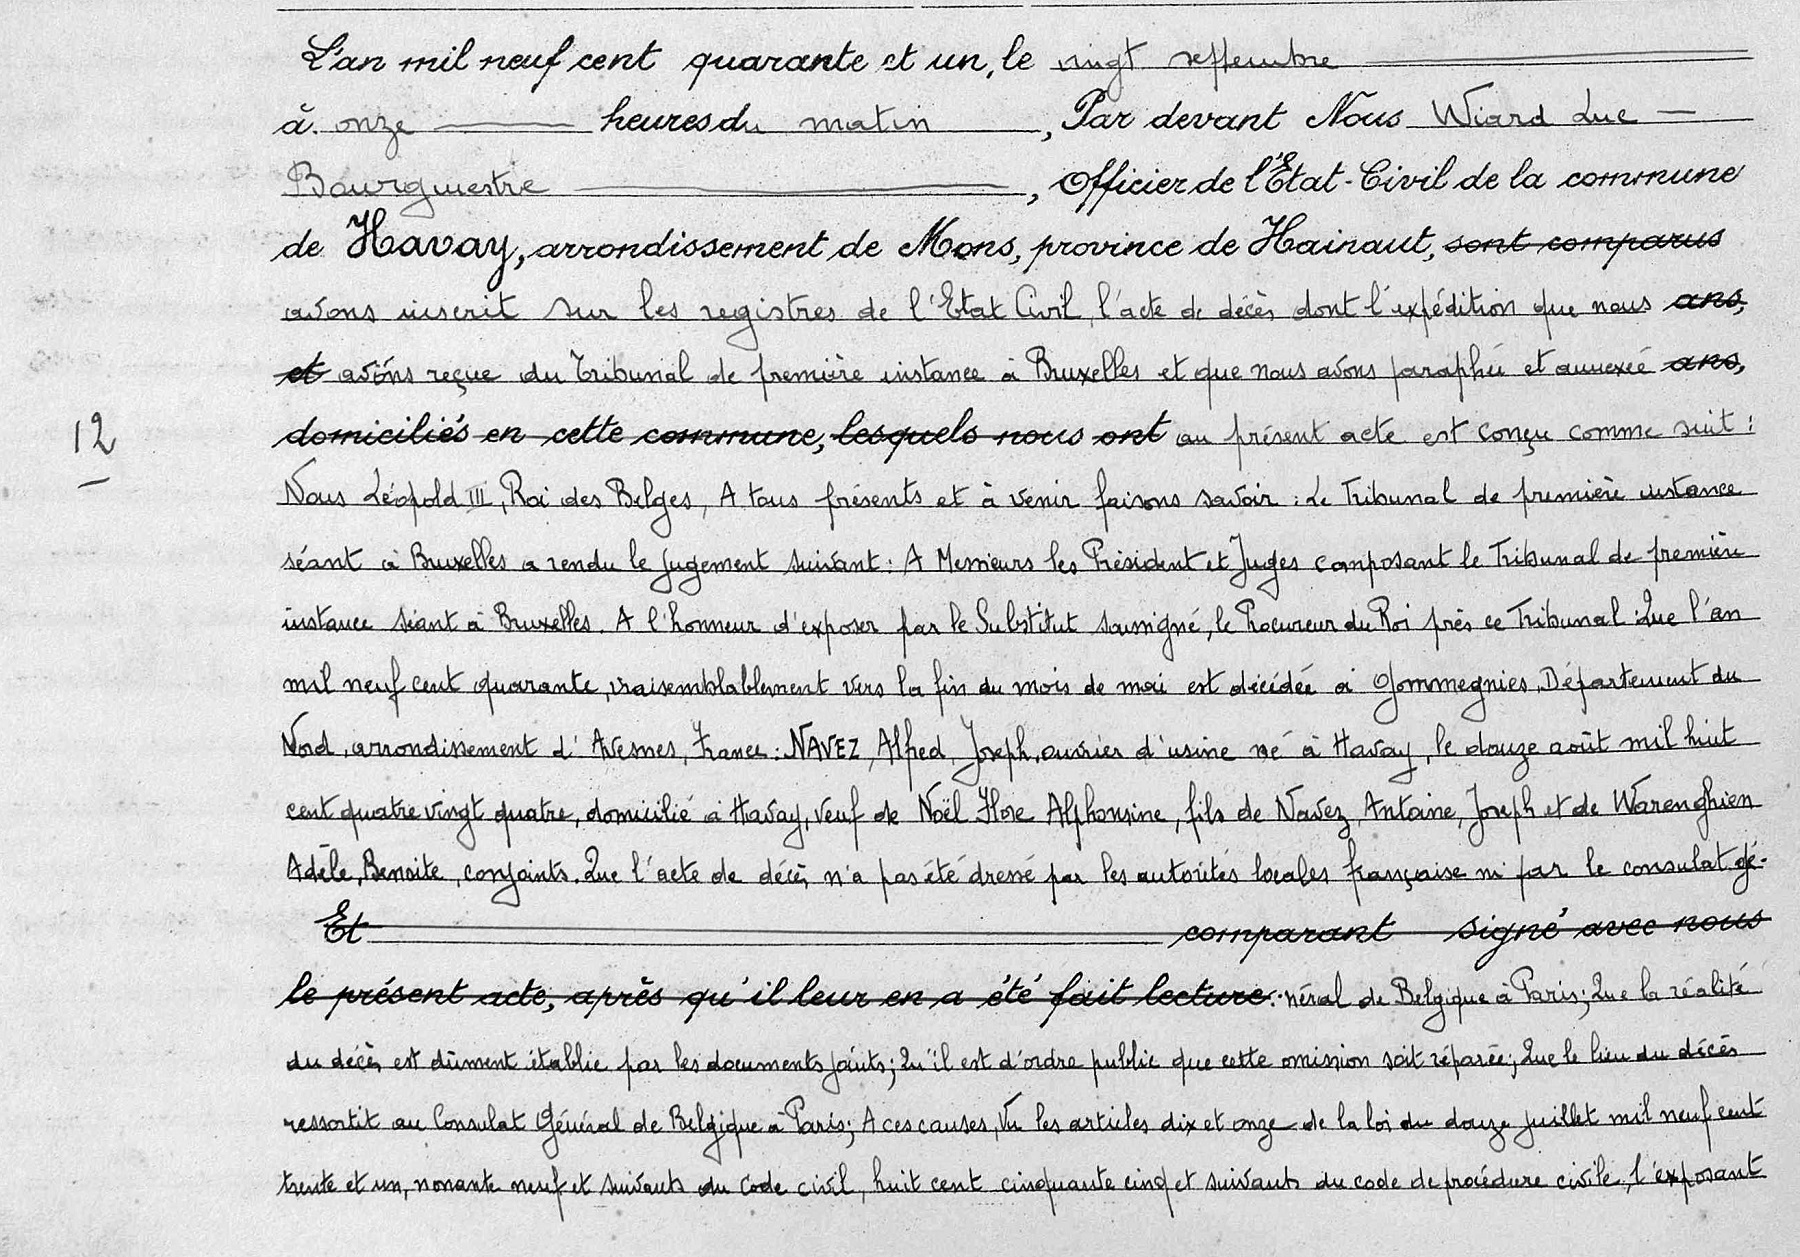 L'an mil neuf cent quarante et un, le vingt septembre
à onze heures du matin, Par devant Nous Wiard Luc
Bourgmestre, Officier de l'Etat-Civil de la commune
de Havay, arrondissement de Mons, province de Hainaut, sont comparus
avons inscrit sur les registres de l'Etat Civil, l'acte de décès dont l'expédition que nous ans,
et avons reçue du Tribunal de première instance à Bruxelles et que nous avons paraphée et annexée ans,
12 domiciliés en cette commune, lesquels nous ont au présent acte est conçu comme suit :
Nous Léopold III, Roi des Belges, A tous présents et à venir faisons savoir : Le Tribunal de première instance
séant à Bruxelles a rendu le jugement suivant : A Messieurs les Président et Juges composant le Tribunal de première
instance séant à Bruxelles. A l'honneur d'exposer par le Substitut soussigné, le Procureur du Roi près ce Tribunal : Que l'an
mil neuf cent quarante, vraisemblablement vers la fin du mois de mai est décédée à Gommegnies, Département du
Nord, arrondissement d'Avesnes, France : NAVEZ, Alfred, Joseph, ouvrier d'usine né à Havay, le douze août mil huit
cent quatre vingt quatre, domicilié à Havay, veuf de Noël Flore Alphonsine, fils de Navez, Antoine, Joseph et de Warenghien
Adèle, Benoite, conjoints. Que l'acte de décès n'a pas été dressé par les autorités locales française ni par le consulat gé-
Et comparant signé avec nous
le présent acte, après qu'il leur en a été fait lecture. néral de Belgique à Paris; Que la réalité
du décès est dûment établie par les documents joints; Qu'il est d'ordre public que cette omission soit réparée; Que le lieu du décès
ressortit au Consulat Général de Belgique à Paris; A ces causes, Vu les articles dix et onze de la loi du douze juillet mil neuf cent
trente et un, nonante neuf et suivants du Code civil, huit cent cinquante cinq et suivants du code de procédure civile, l'exposant